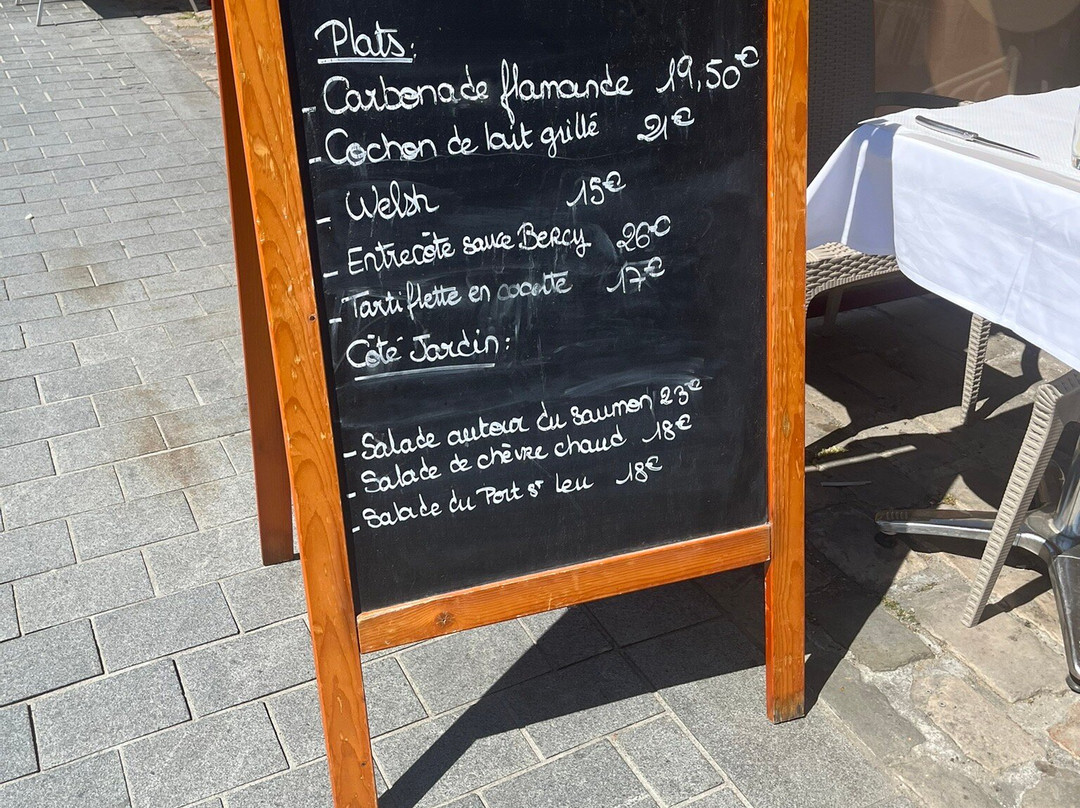 Plats:
- Carbonade flamande 19,50€
- Cochon de lait grillé 21€
- Welsh 15€
- Entrecôte sauce Bercy 26€
- Tartiflette en cocotte 17€
Côté Jardin:
- Salade autour du saumon 23€
- Salade de chèvre chaud 18€
- Salade du Port St Leu 18€